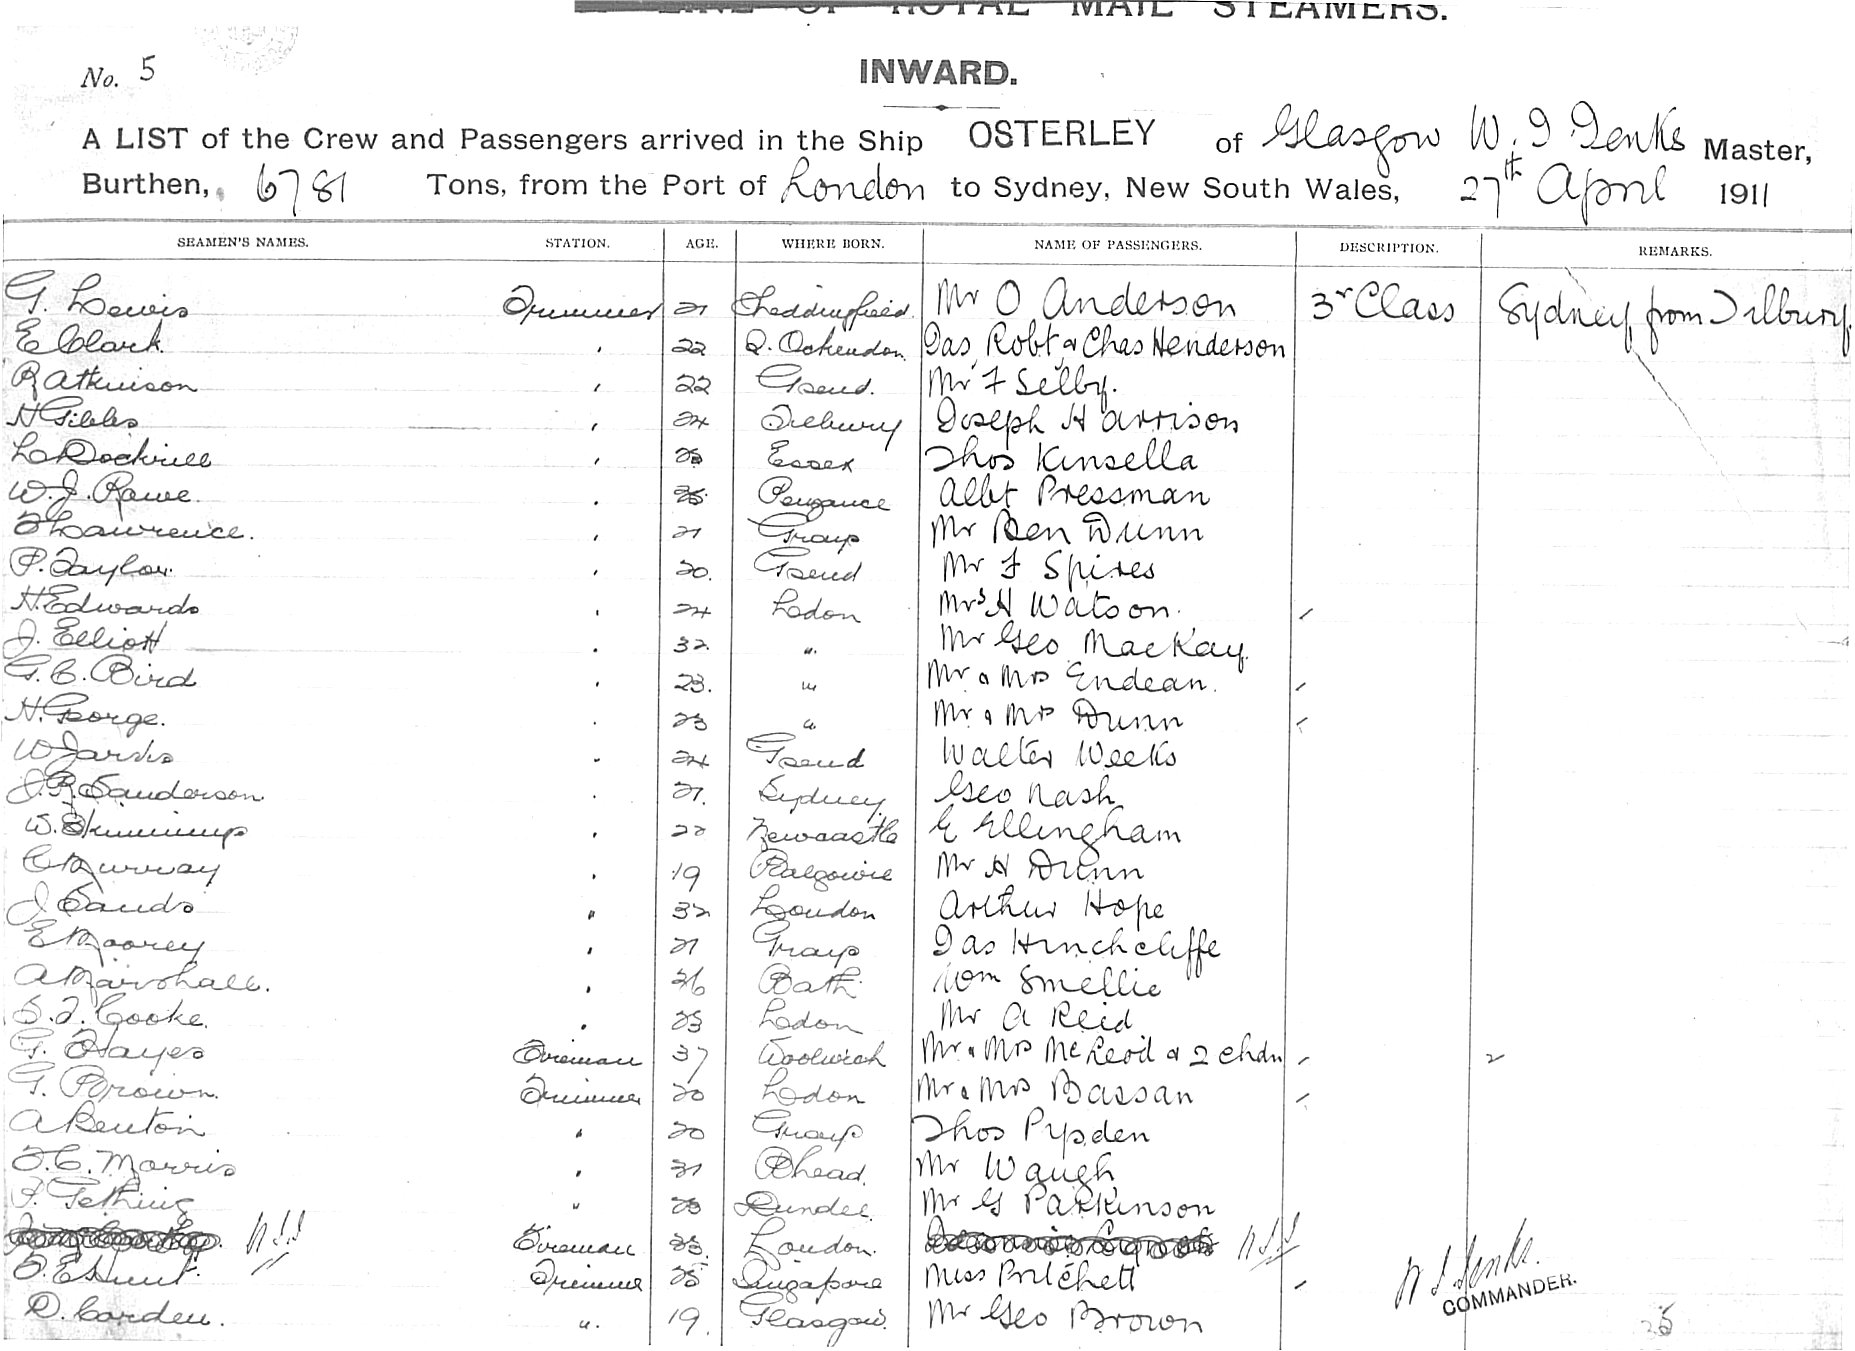 LINE OF ROYAL MAIL STEAMERS.
No. 5
INWARD.
A LIST of the Crew and Passengers arrived in the Ship OSTERLEY of Glasgow W. J Jenks Master,
Burthen, 6781 Tons, from the Port of London to Sydney, New South Wales, 27th April 1911
SEAMEN'S NAMES. STATION. AGE. WHERE BORN. NAME OF PASSENGERS. DESCRIPTION. REMARKS.
G. Lewis Trimmer 21 Mr O Anderson 3r Class Sydney from Tilbury
E Clark. 22 Ockendon Jas, Robt & Chas Henderson
R Atkinson 22 Gsend. Mr F Selby.
H Gibbs 24 Tilbury Joseph Harrison
L Dockrill Essex Thos Kinsella
W. J. Rawe. Penzance Albt Pressman
Lawrence. 21 Grays Mr Ben Dunn
P. Taylor. 20. Gsend Mr F Spires
H. Edwards 24 Lodon Mrs H Watson.
J. Elliott 32 " Mr Geo MacKay.
G. C. Bird 23. " Mr & Mrs Endean.
H. George. 23 " Mr & Mrs Dunn
W Jarvis 24 Gsend Walter Weeks
J. R. Sanderson 21. Sydney Geo Nash
W. 22 Newcastle E Ellingham
C Murray 19 Mr H Dunn
J Sands " 32 London Arthur Hope
E Moorey 21 Grays Jas Hinchcliffe
A Marshall. 26 Bath Wm Smellie
S. J. Cooke. 23 Lodon Mr A Reid
G. Hayes Fireman 37 Woolwich Mr & Mrs McLeod & 2 chdn 2
G. Brown. Trimmer 20 Lodon Mr & Mrs Bassan
A Benton " 20 Grays Thos Pypden
F. C. Morris 21 Bhead. Mr Waugh
F. Gething " Dundee. Mr G Parkinson
Fireman London.
Hunt. Trimmer Singapore Miss Pritchett
D. Carden. " 19. Glasgow. Mr Geo Brown
Jenks.
COMMANDER.